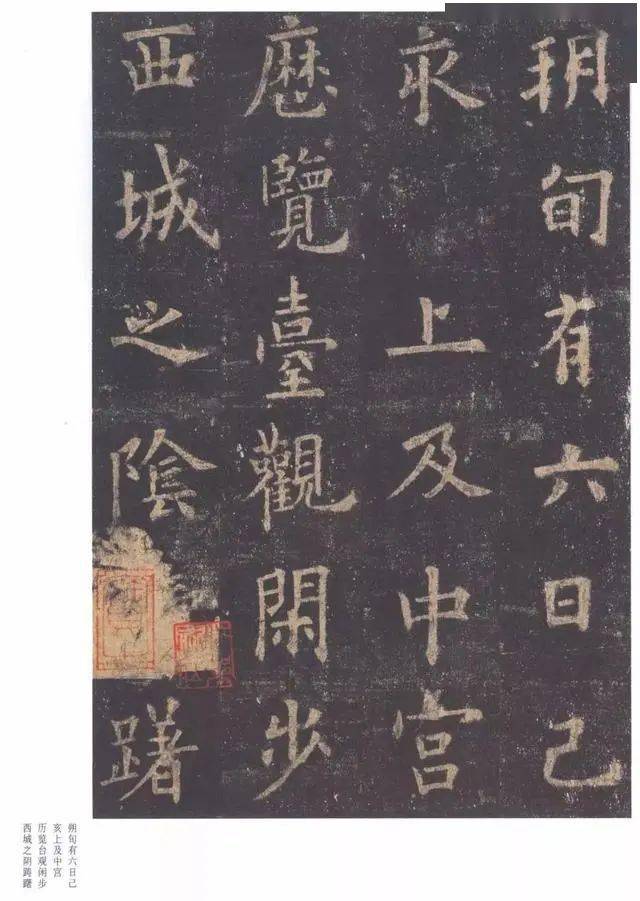 朔旬有六日己
亥上及中宫
歷覽臺觀閑步
西城之陰躇
朔旬有六日己
亥上及中宫
历览台观闲步
西城之阴踌躇